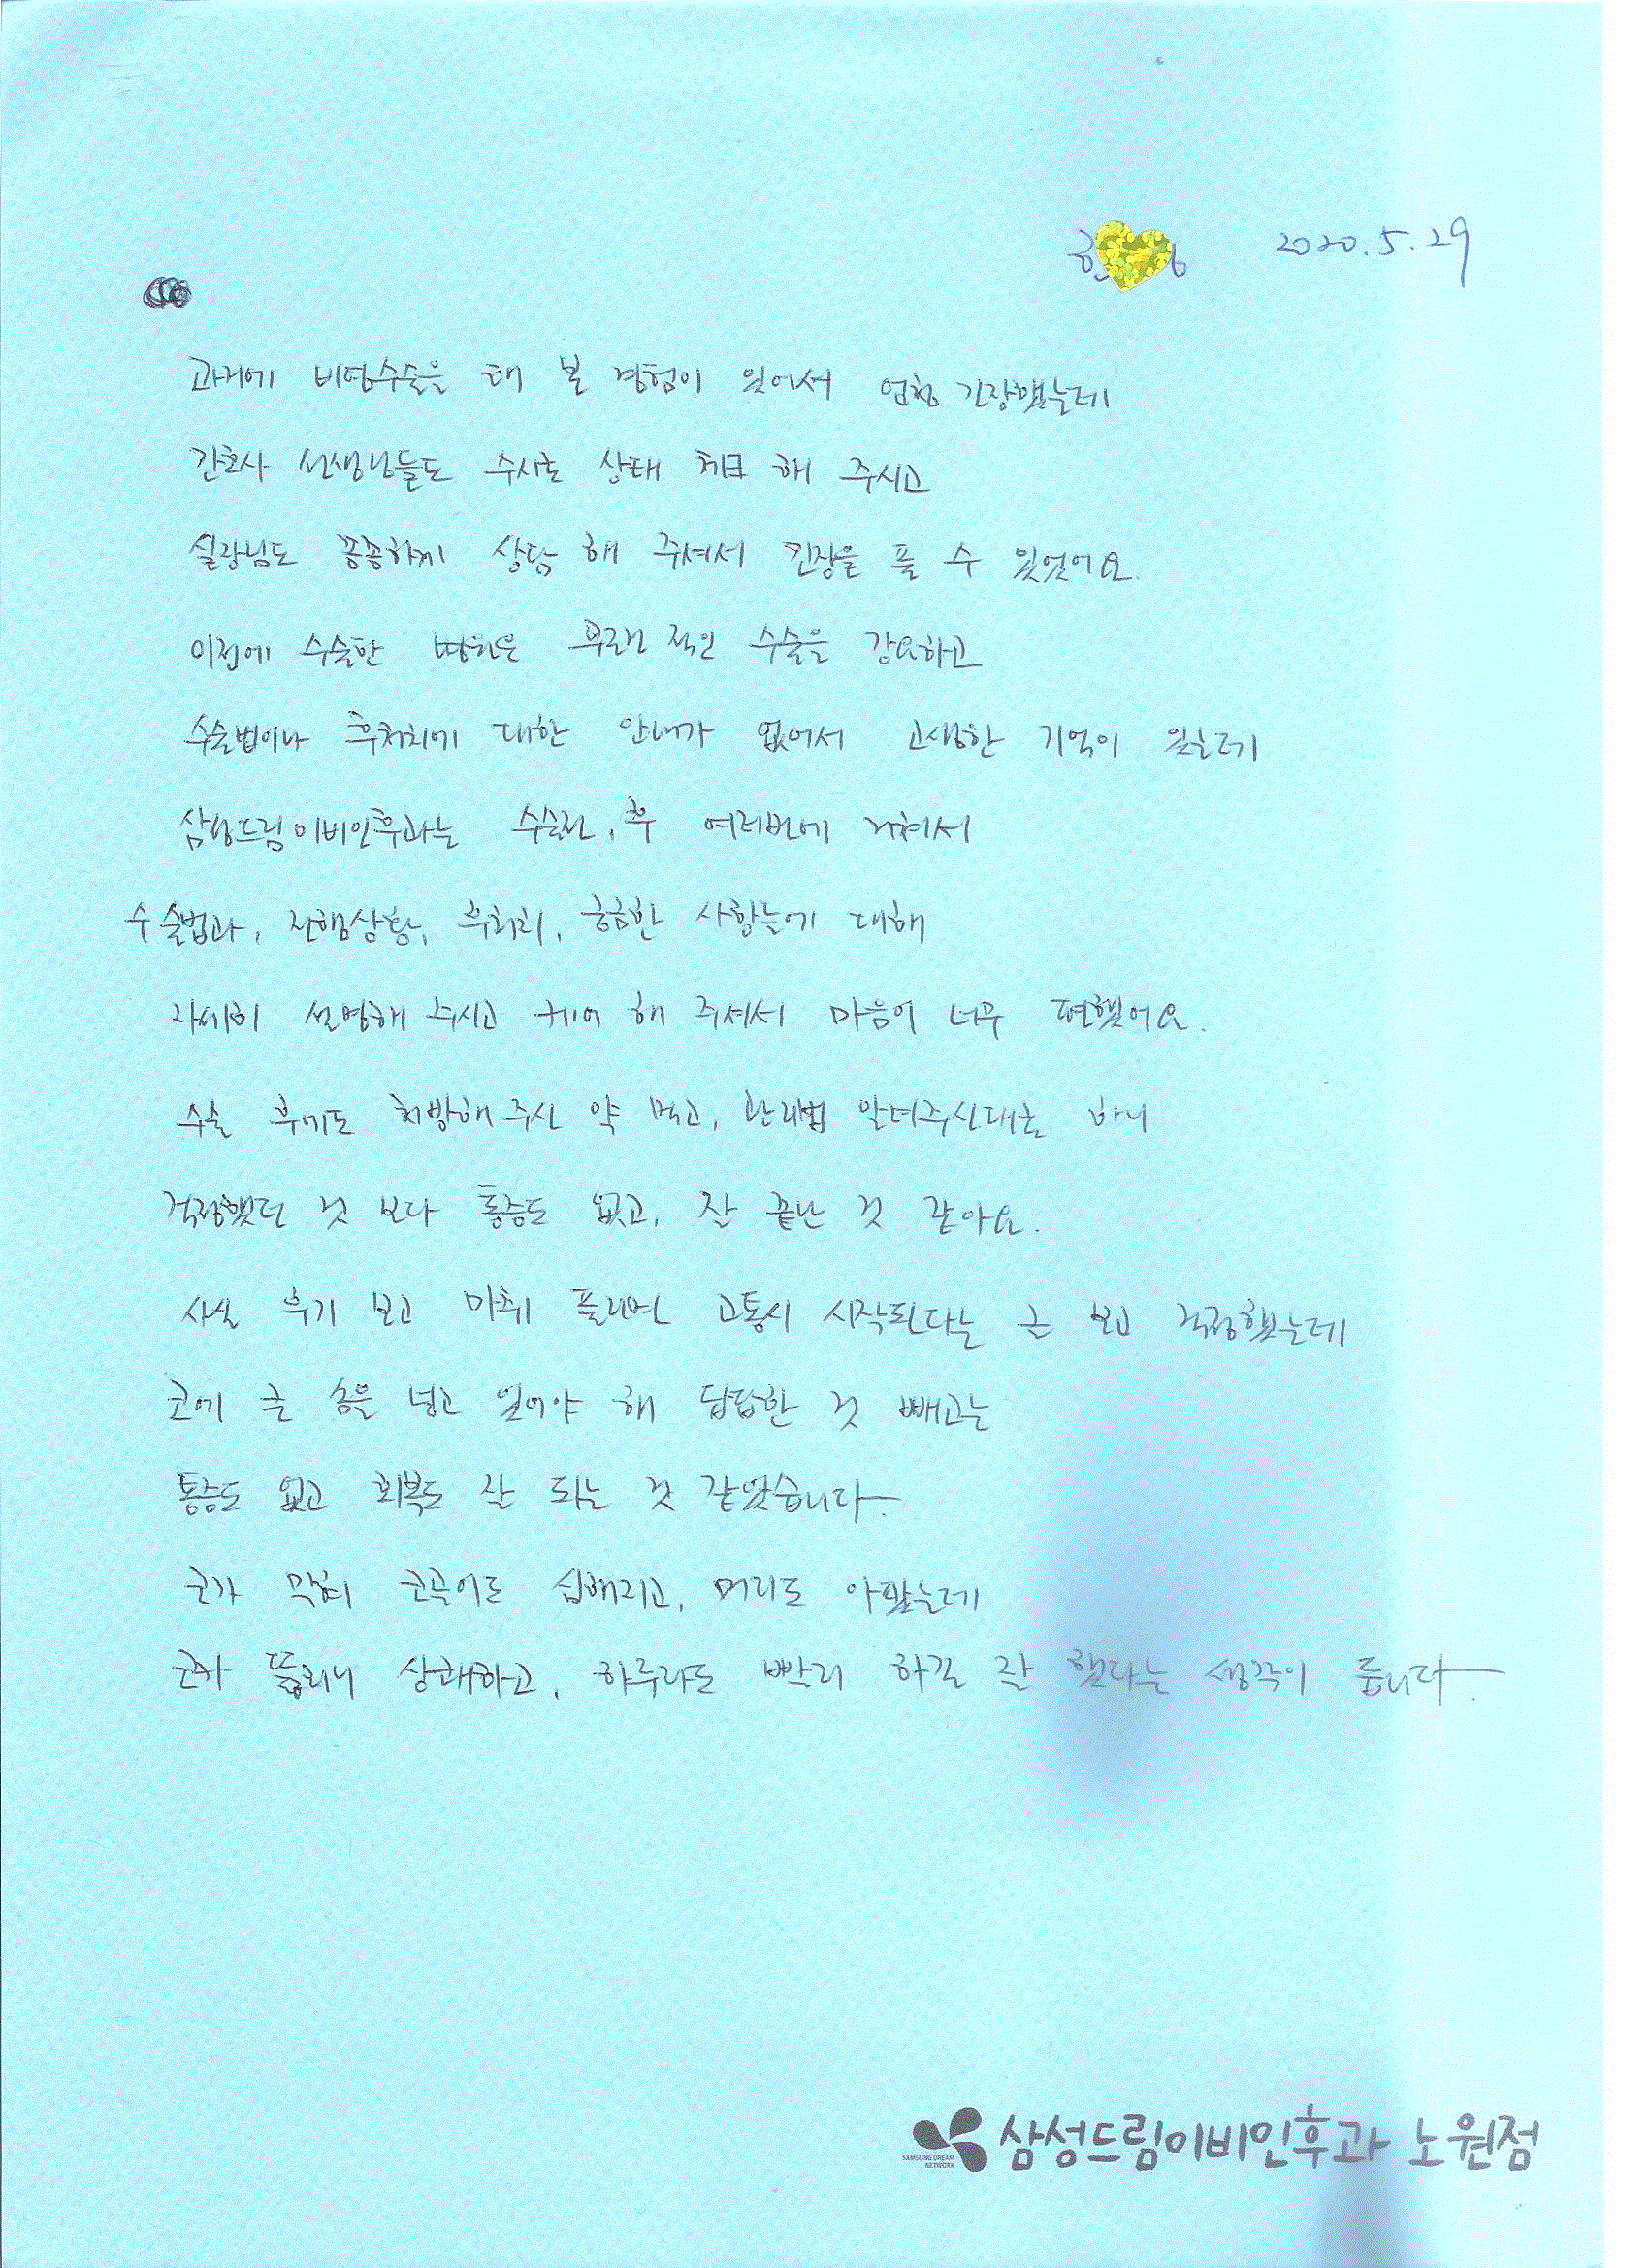 2020.5.29
과거에 비염수술을 해 본 경험이 있어서 엄청 긴장했는데
간호사 선생님들도 수시로 상태 체크 해 주시고
실장님도 꼼꼼하게 상담 해 주셔서 긴장을 풀 수 있었어요.
이전에 수술한 병원은 무조건 적인 수술을 강요하고
수술법이나 후처치에 대한 안내가 없어서 고생한 기억이 있는데
삼성드림이비인후과는 수술전, 후 여러번에 거쳐서
수술법과, 진행상황, 후처치, 궁금한 사항들에 대해
자세히 설명해 주시고 케어 해 주셔서 마음이 너무 편했어요.
수술 후에도 처방해 주신 약 먹고, 관리법 알려주신대로 하니
걱정했던 것 보다 통증도 없고, 잘 끝난 것 같아요.
사실 후기 보고 마취 풀리면 고통이 시작된다는 글 보고 걱정했는데
코에 큰 솜을 넣고 있어야 해 답답한 것 빼고는
통증도 없고 회복도 잘 되는 것 같았습니다.
코가 막혀 코골이도 심해지고, 머리도 아팠는데
코가 뚫리니 상쾌하고, 하루라도 빨리 하길 잘 했다는 생각이 듭니다.
SAMSUNG DREAM NETWORK
삼성드림이비인후과 노원점